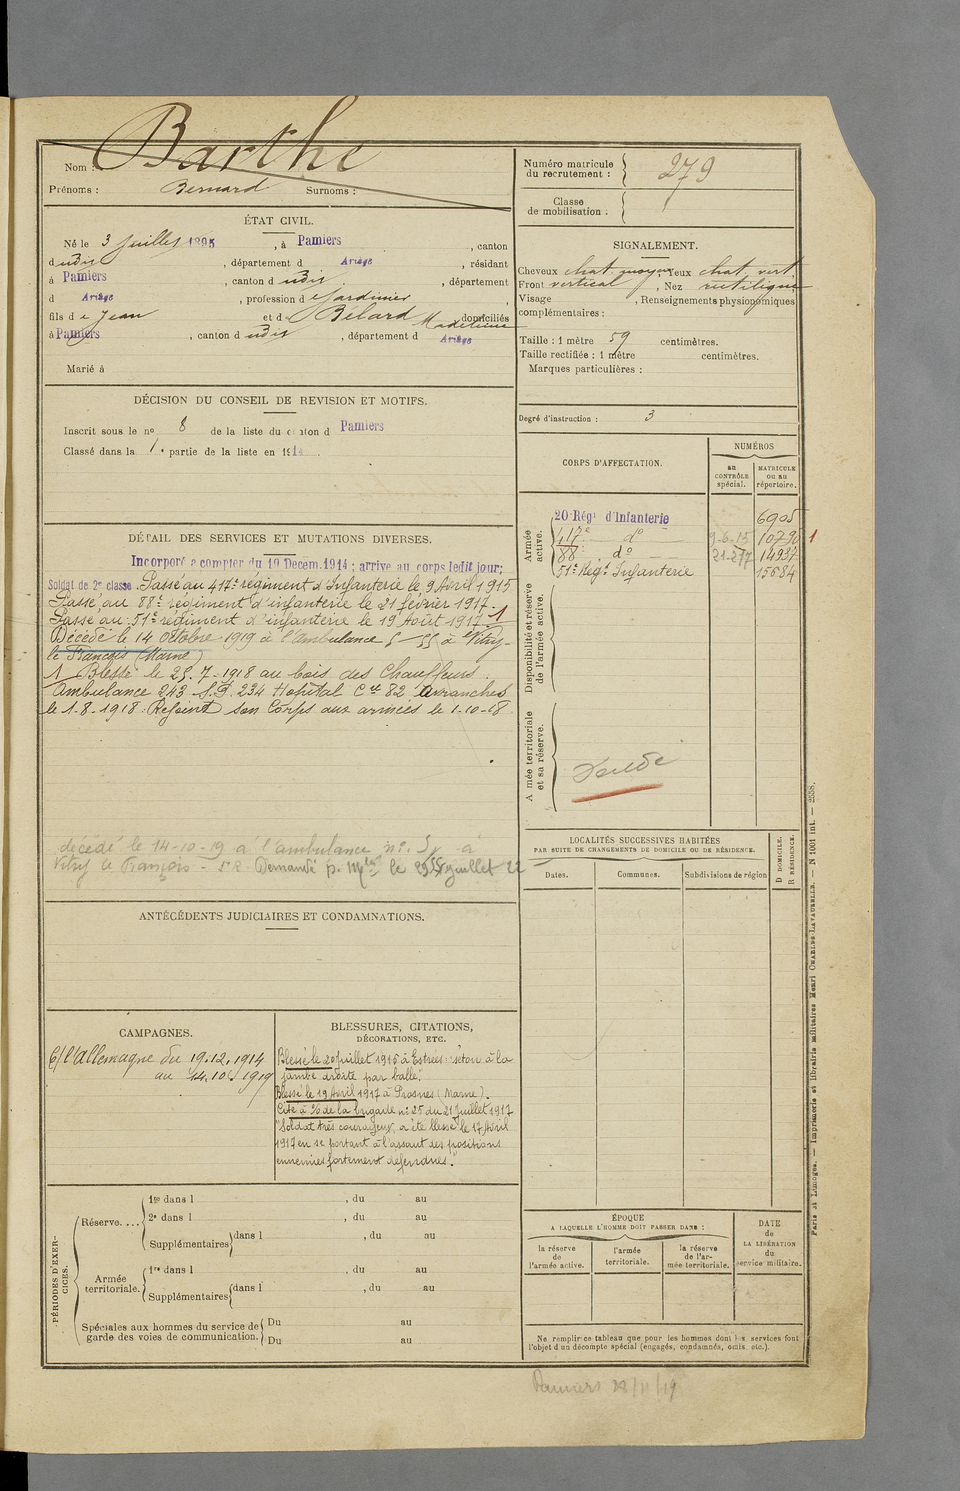 Nom : Barthe
Prénoms : Bernard Surnoms :
ÉTAT CIVIL.
Né le 3 Juillet 1895, à Pamiers, canton
dudit, département d Ariège, résidant
à Pamiers, canton dudit, département
d Ariège, profession de Jardinier,
fils de Jean et de Bélard Madeleine domiciliés
à Pamiers, canton dudit, département d Ariège
Marié à
DÉCISION DU CONSEIL DE REVISION ET MOTIFS.
Inscrit sous le no 8 de la liste du canton d Pamiers
Classé dans la 1e partie de la liste en 1914.
DÉTAIL DES SERVICES ET MUTATIONS DIVERSES.
Incorporé à compter du 19 Décem. 1914 ; arrivé au corps ledit jour;
Soldat de 2e classe. Passé au 417e régiment d'Infanterie le 9 Avril 1915
Passé au 88e régiment d'infanterie le 21 février 1917.
Passé au 51e régiment d'infanterie le 19 Août 1917. 1
Décédé le 14 octobre 1919 à l'ambulance 5/55 à Vitry-
le François (Marne)
1 Blessé le 25-7-1918 au bois des Chauffeurs.
Ambulance 243 S.P. 234 Hopital Cre 82 Avranches
le 1-8-1918. Rejoint son Corps aux armées le 1-10-18
décédé le 14-10-19 à l'ambulance no 5/ à
Vitry le François - Demandé p. le 29 juillet 22
ANTÉCÉDENTS JUDICIAIRES ET CONDAMNATIONS.
CAMPAGNES.
C/ l'Allemagne du 19.12.1914
au 14.10.1919
BLESSURES, CITATIONS,
DÉCORATIONS, ETC.
Blessé le 20 Juillet 1916 à Estrées : séton à la
jambe droite par balle.
Blessé le 19 Avril 1917 à Prosnes (Marne).
Cité à l'O/ de la brigade no 25 du 21 Juillet 1917
"Soldat très courageux, a été blessé le 17 Avril
1917 en se portant à l'assaut des positions
ennemies fortement défendues".
PÉRIODES D'EXERCICES.
Réserve....
1re dans l , du au
2e dans l , du au
Supplémentaires dans l , du au
Armée territoriale.
1re dans l , du au
Supplémentaires dans l , du au
Spéciales aux hommes du service de garde des voies de communication.
Du au
Du au
Numéro matricule du recrutement : 279
Classe de mobilisation :
SIGNALEMENT.
Cheveux chat. moyen, Yeux chat. vert
Front vertical, Nez rectiligne
Visage , Renseignements physionomiques
complémentaires :
Taille : 1 mètre 59 centimètres.
Taille rectifiée : 1 mètre centimètres.
Marques particulières :
Degré d'instruction : 3
CORPS D'AFFECTATION.
NUMÉROS
au CONTRÔLE spécial.
MATRICULE ou au répertoire.
Armée active.
20 Régt d'Infanterie 6905
417e do 9-6-15 10790 1
88e do 21-2-17 14937
51e Régt Infanterie 15684
Disponibilité et réserve de l'armée active.
Armée territoriale et sa réserve.
LOCALITÉS SUCCESSIVES HABITÉES
PAR SUITE DE CHANGEMENTS DE DOMICILE OU DE RÉSIDENCE.
Dates. Communes. Subdivisions de région
D DOMICILE.
R RÉSIDENCE.
ÉPOQUE
A LAQUELLE L'HOMME DOIT PASSER DANS :
la réserve de l'armée active.
l'armée territoriale.
la réserve de l'armée territoriale.
DATE de LA LIBÉRATION du service militaire.
Ne remplir ce tableau que pour les hommes dont les services font
l'objet d'un décompte spécial (engagés, condamnés, omis, etc.).
Paris et Limoges. — Imprimerie et librairie militaires Henri CHARLES-LAVAUZELLE. — N 1001 int. — 2558.
Pamiers 28/11/19